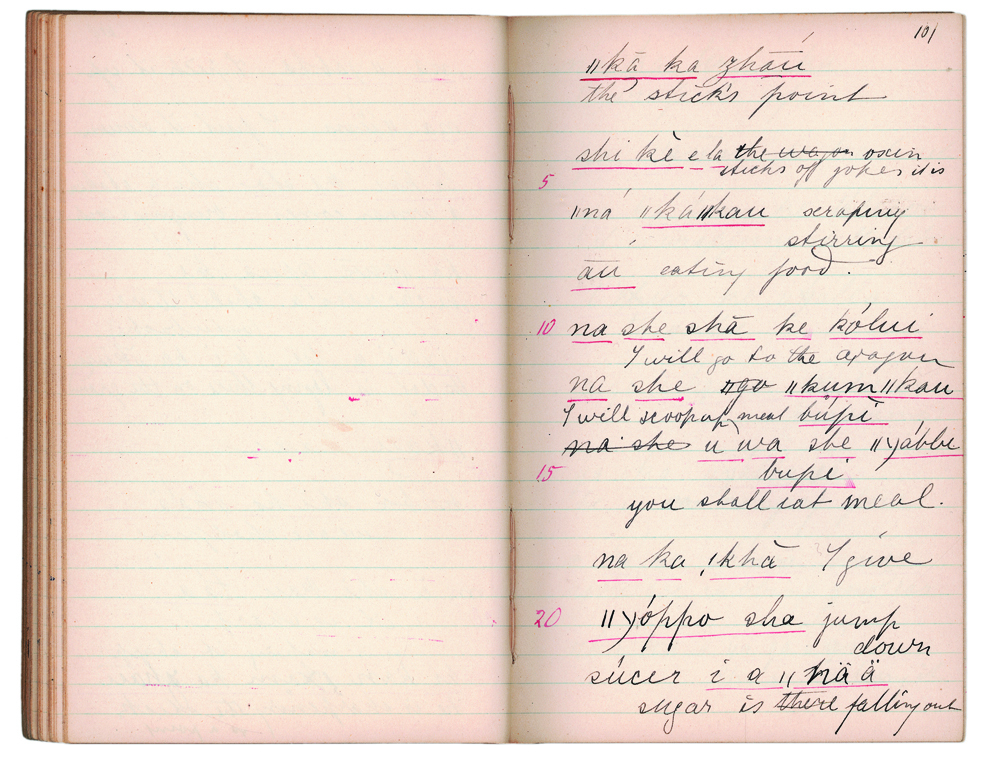 101
ǁkā ka zhāú
the stick's point
shi kè e la ~~the wagon~~ oxen
sticks of yokes it is
5
ǁná ǁkáǁkau scraping
stirring
āú eating food.
10 na she shā ke kólui
I will go to the wagon
na she ǁgo ǁkumǁkau
I will scoop up meal búpì
~~na she~~ u wa she ǁyábbe
15 bupi
you shall eat meal.
na ka ǃkhā I give
20 ǁyóppo sha jump
down
súcer i a ǁnä ä
sugar is ~~there~~ falling out